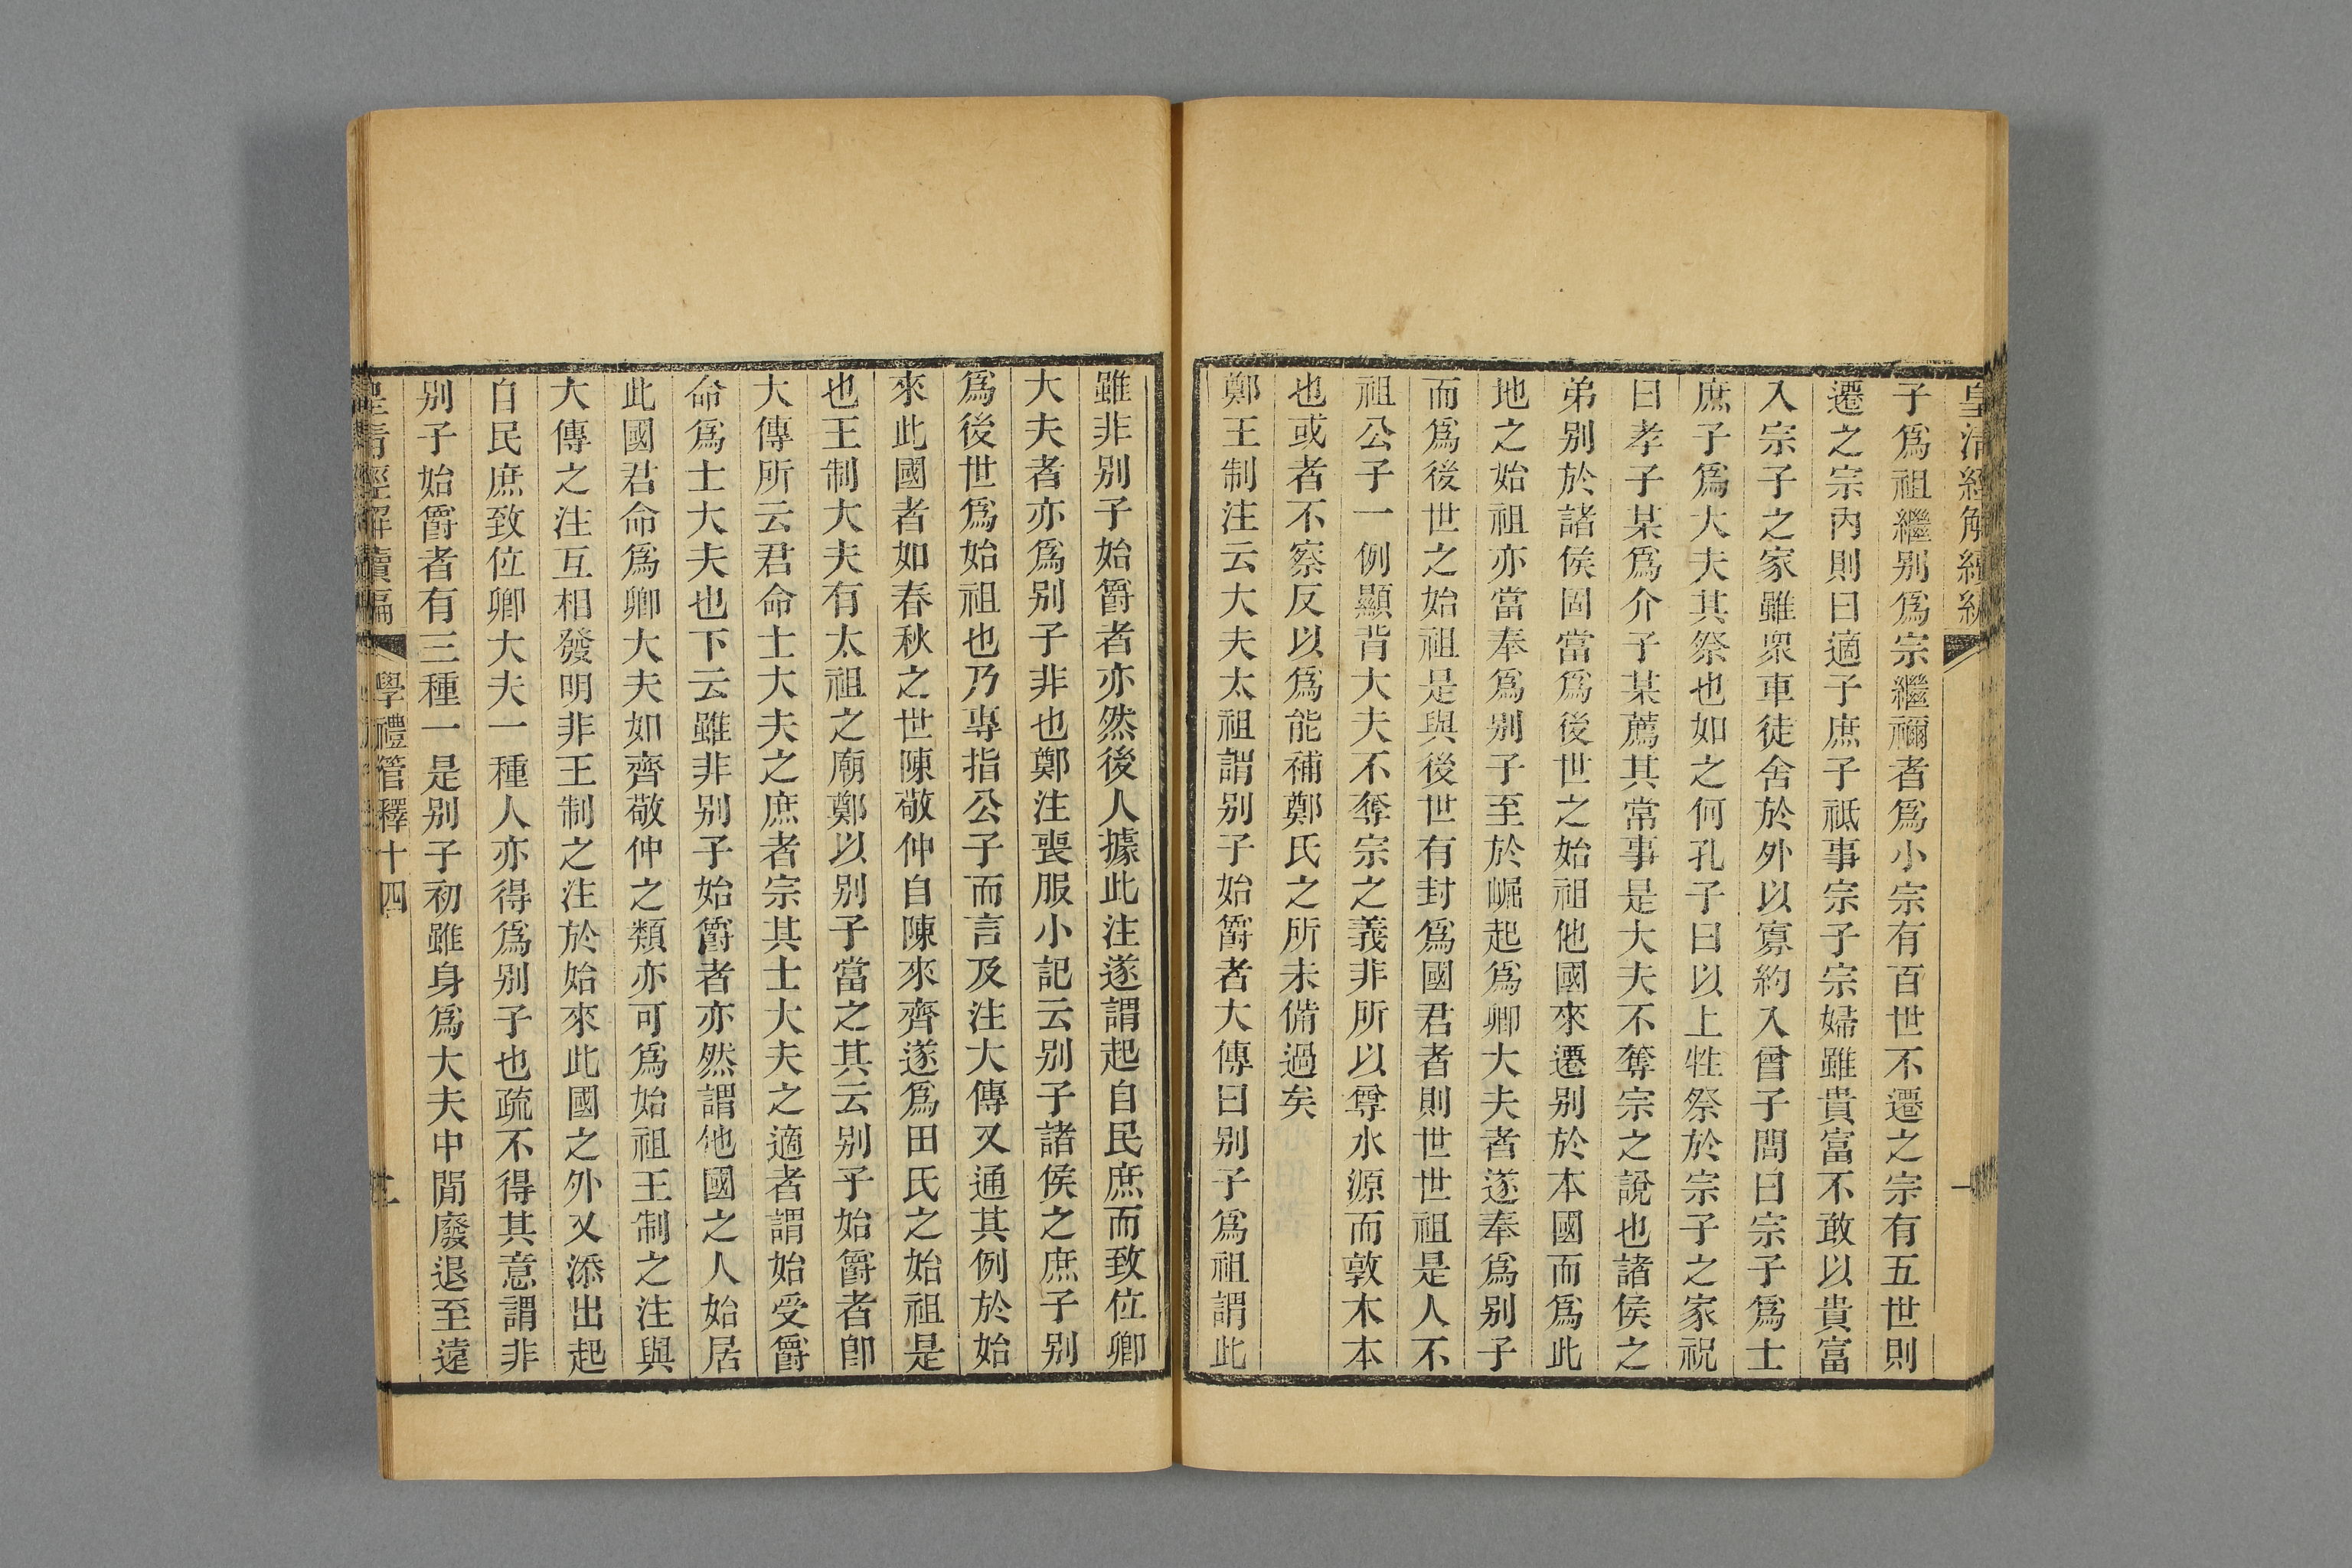 皇清經解續編
子爲祖繼别爲宗繼禰者爲小宗有百世不遷之宗有五世則
遷之宗內則曰適子庶子祗事宗子宗婦雖貴富不敢以貴富
入宗子之家雖衆車徒舍於外以寡約入曾子問曰宗子爲士
庶子爲大夫其祭也如之何孔子曰以上牲祭於宗子之家祝
曰孝子某爲介子某薦其常事是大夫不奪宗之說也諸侯之
弟别於諸侯固當爲後世之始祖他國來遷别於本國而爲此
地之始祖亦當奉爲别子至於崛起爲卿大夫者遂奉爲别子
而爲後世之始祖是與後世有封爲國君者則世世祖是人不
祖公子一例顯背大夫不奪宗之義非所以尊水源而敦木本
也或者不察反以爲能補鄭氏之所未備過矣
鄭王制注云大夫太祖謂别子始爵者大傳曰别子爲祖謂此
雖非别子始爵者亦然後人據此注遂謂起自民庶而致位卿
大夫者亦爲别子非也鄭注喪服小記云别子諸侯之庶子别
爲後世爲始祖也乃專指公子而言及注大傳又通其例於始
來此國者如春秋之世陳敬仲自陳來齊遂爲田氏之始祖是
也王制大夫有太祖之廟鄭以别子當之其云别子始爵者卽
大傳所云君命士大夫之庶者宗其士大夫之適者謂始受爵
命爲士大夫也下云雖非别子始爵者亦然謂他國之人始居
此國君命爲卿大夫如齊敬仲之類亦可爲始祖王制之注與
大傳之注互相發明非王制之注於始來此國之外又添出起
自民庶致位卿大夫一種人亦得爲别子也疏不得其意謂非
别子始爵者有三種一是别子初雖身爲大夫中閒廢退至遠
皇清經解續編 學禮管釋十四